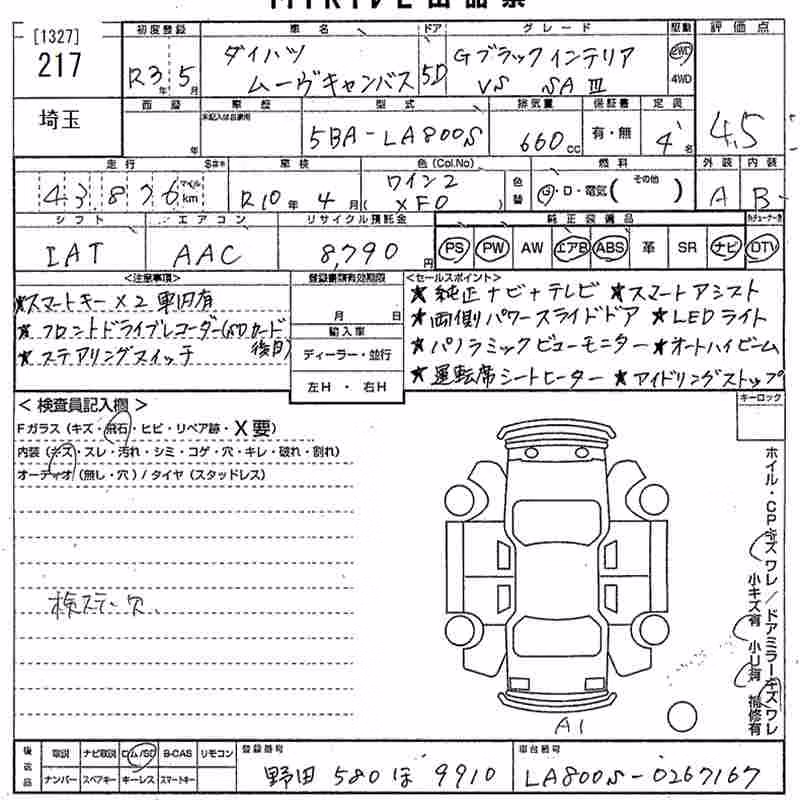 [1327]
217
埼玉
初度登録
R3年5月
車名
ダイハツ
ムーヴキャンバス
ドア
5D
グレード
Gブラックインテリア
VS SAⅢ
駆動
2WD
4WD
評価点
4.5
車歴
未記入は自家用
年
型式
5BA-LA800S
排気量
660cc
保証書
有・無
定員
4名
走行
43,876
マイル
km
車検
R10年4月
色(Col.No)
ワイン2
(XF0)
色替
燃料
G・D・電気(その他)
外装
A
内装
B
シフト
IAT
エアコン
AAC
リサイクル預託金
8,790円
純正装備品
PS PW AW エアB ABS 革 SR ナビ DTV
<注意事項>
★スマートキー×2 車内有
★フロントドライブレコーダー(SDカード後日)
★ステアリングスイッチ
登録書類有効期限
月 日
輸入車
ディーラー・並行
左H・右H
<セールスポイント>
★純正ナビ+テレビ ★スマートアシスト
★両側パワースライドドア ★LEDライト
★パノラミックビューモニター ★オートハイビーム
★運転席シートヒーター ★アイドリングストップ
キーロック
<検査員記入欄>
Fガラス(キズ・飛石・ヒビ・リペア跡・X要)
内装(キズ・スレ・汚れ・シミ・コゲ・穴・キレ・破れ・割れ)
オーディオ(無し・穴)/タイヤ(スタッドレス)
検ステ欠
ホイル・CPキズワレ/ドアミラーキズワレ
小キズ有 小U有 補修有
A1
後送品
取説 ナビ取説 ロム/SD B-CAS リモコン
ナンバー スペアキー キーレス スマートキー
登録番号
野田 580 ほ 9910
車台番号
LA800S-0267167